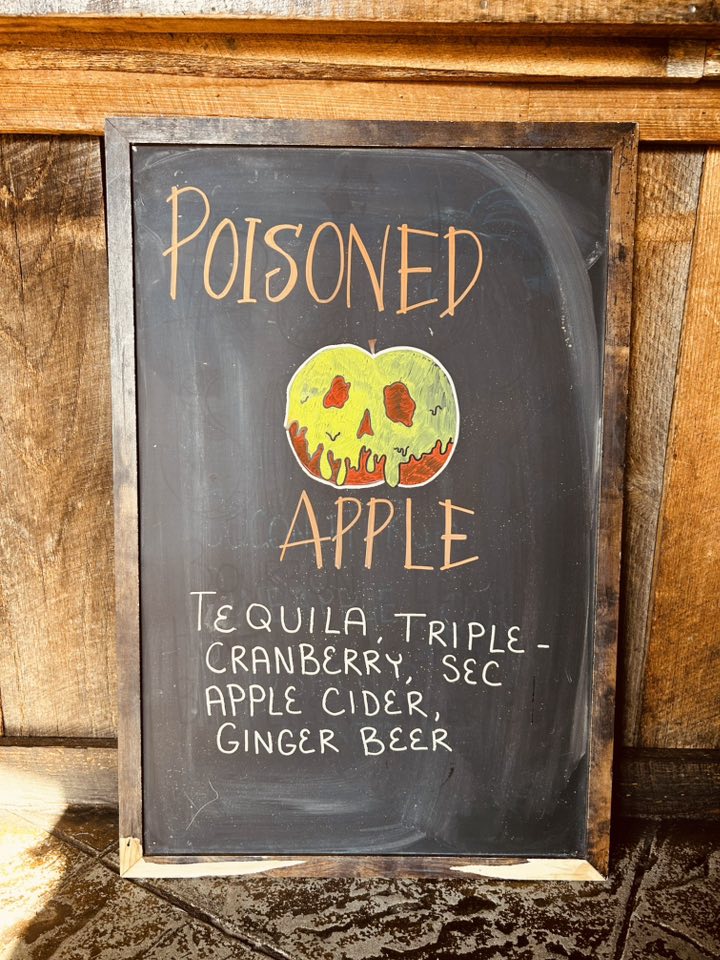 POISONED
APPLE
TEQUILA, TRIPLE-
CRANBERRY, SEC
APPLE CIDER,
GINGER BEER